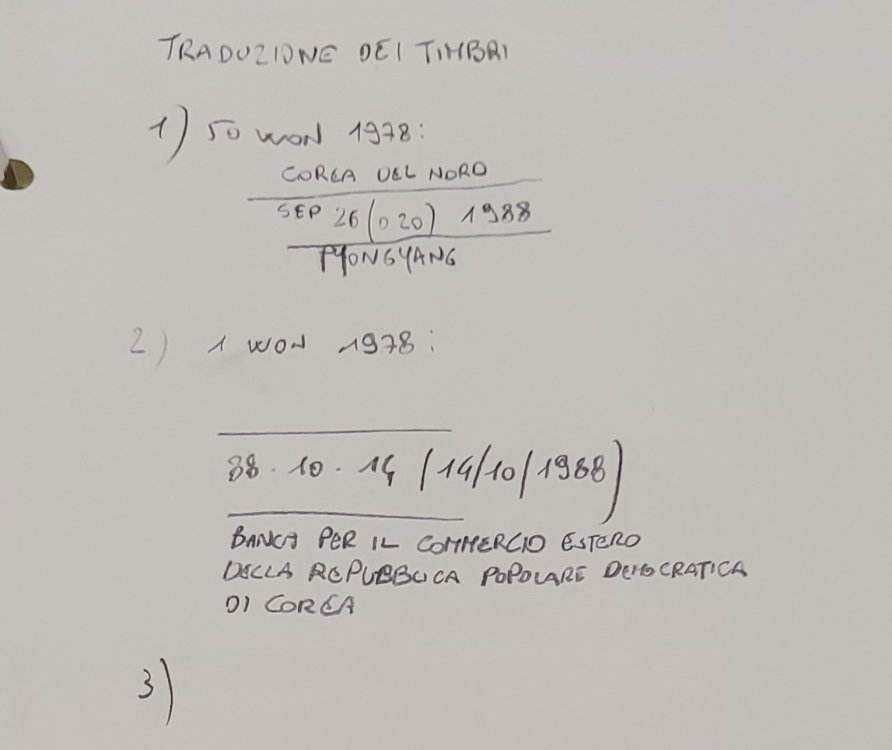 TRADUZIONE DEI TIMBRI
1) 50 WON 1978:
COREA DEL NORD
SEP 26 (O 20) 1988
PYONGYANG
2) 1 WON 1978:
88. 10. 14 (14/10/1988)
BANCA PER IL COMMERCIO ESTERO
DELLA REPUBBLICA POPOLARE DEMOCRATICA
DI COREA
3)